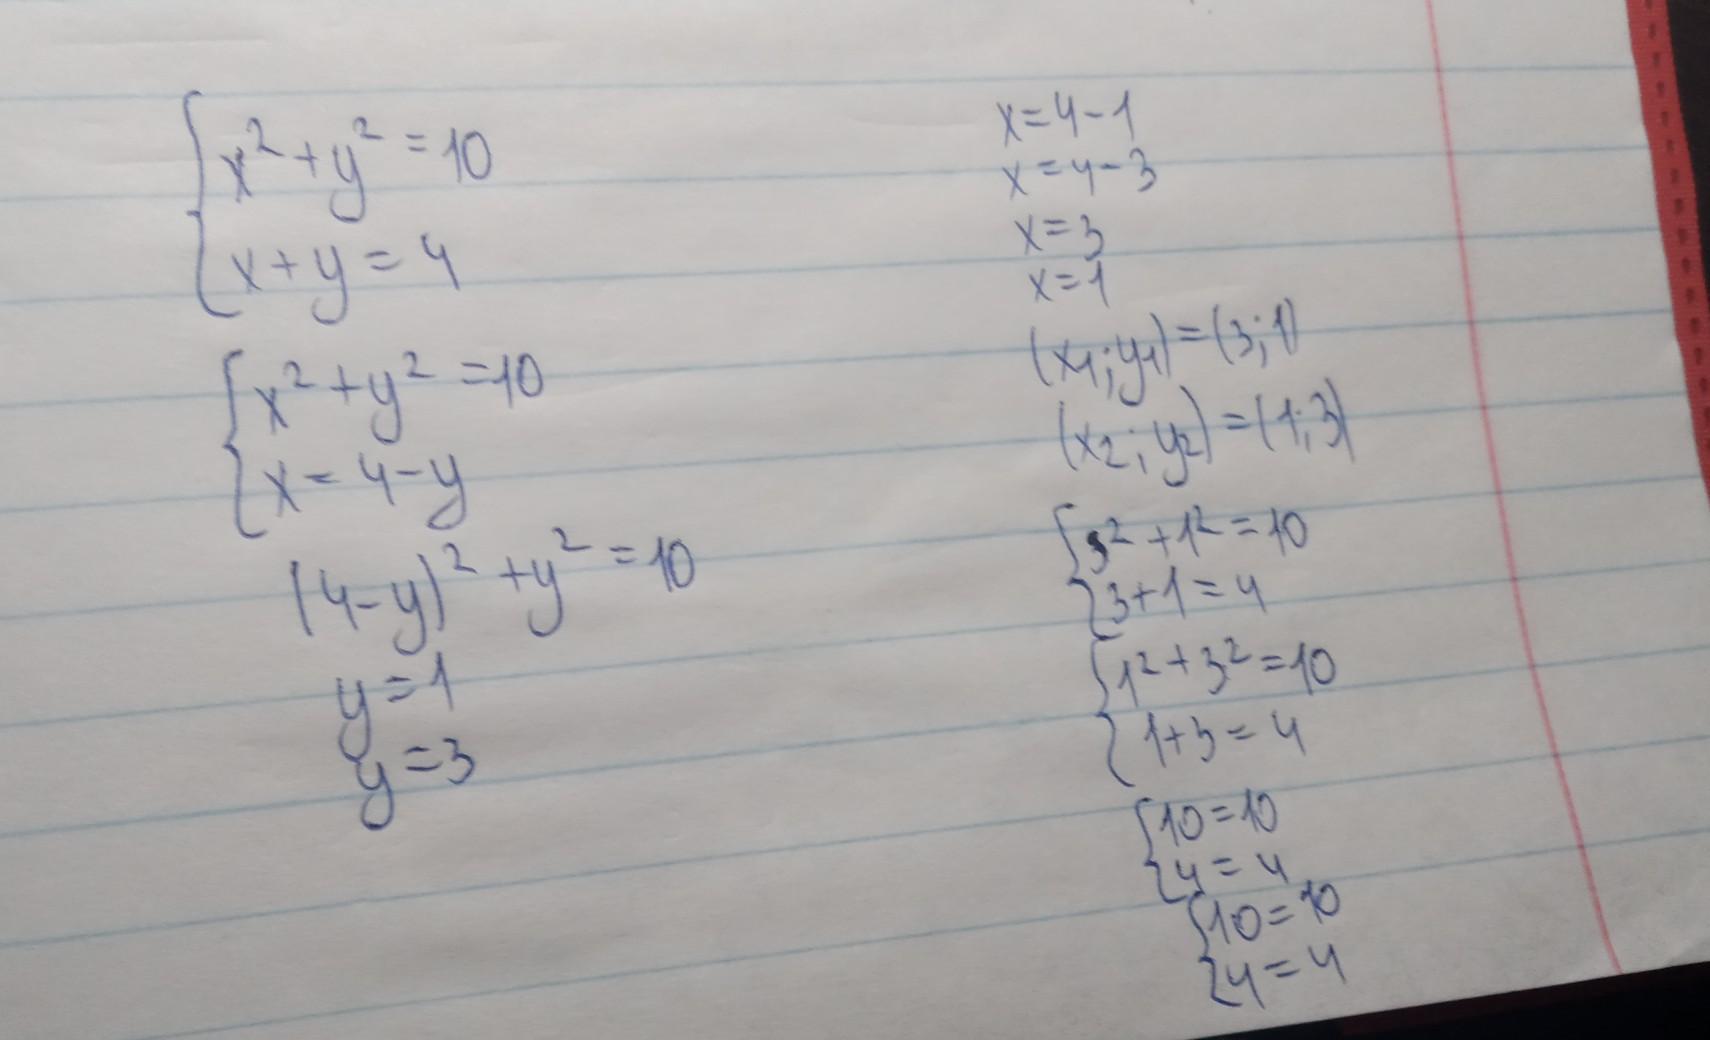 x² + y² = 10
x + y = 4
x² + y² = 10
x = 4 - y
(4 - y)² + y² = 10
y = 1
y = 3
x = 4 - 1
x = 4 - 3
x = 3
x = 1
(x₁; y₁) = (3; 1)
(x₂; y₂) = (1; 3)
3² + 1² = 10
3 + 1 = 4
1² + 3² = 10
1 + 3 = 4
10 = 10
4 = 4
10 = 10
4 = 4